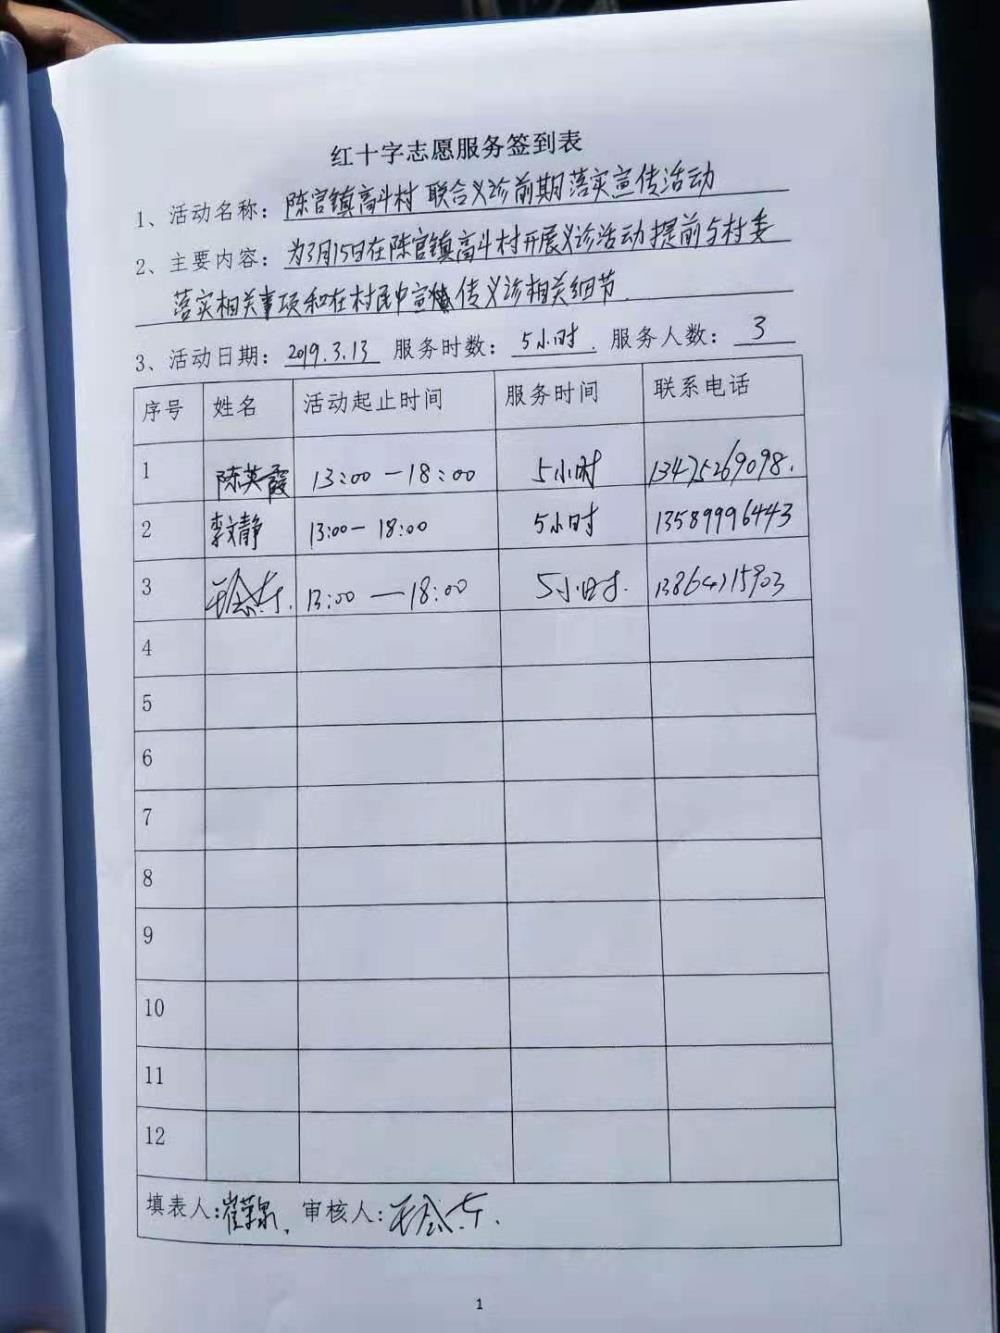 红十字志愿服务签到表
1、活动名称：陈官镇高斗村联合义诊前期落实宣传活动
2、主要内容：为3月15日在陈官镇高斗村开展义诊活动提前与村委
落实相关事项和在村民中宣传义诊相关细节.
3、活动日期：2019.3.13 服务时数：5小时. 服务人数：3
序号 姓名 活动起止时间 服务时间 联系电话
1 陈英霞 13:00-18:00 5小时 13475269098.
2 李文静 13:00-18:00 5小时 13589996443
3 13:00—18:00 5小时. 13864715903
4
5
6
7
8
9
10
11
12
填表人：崔荣泉. 审核人：
1